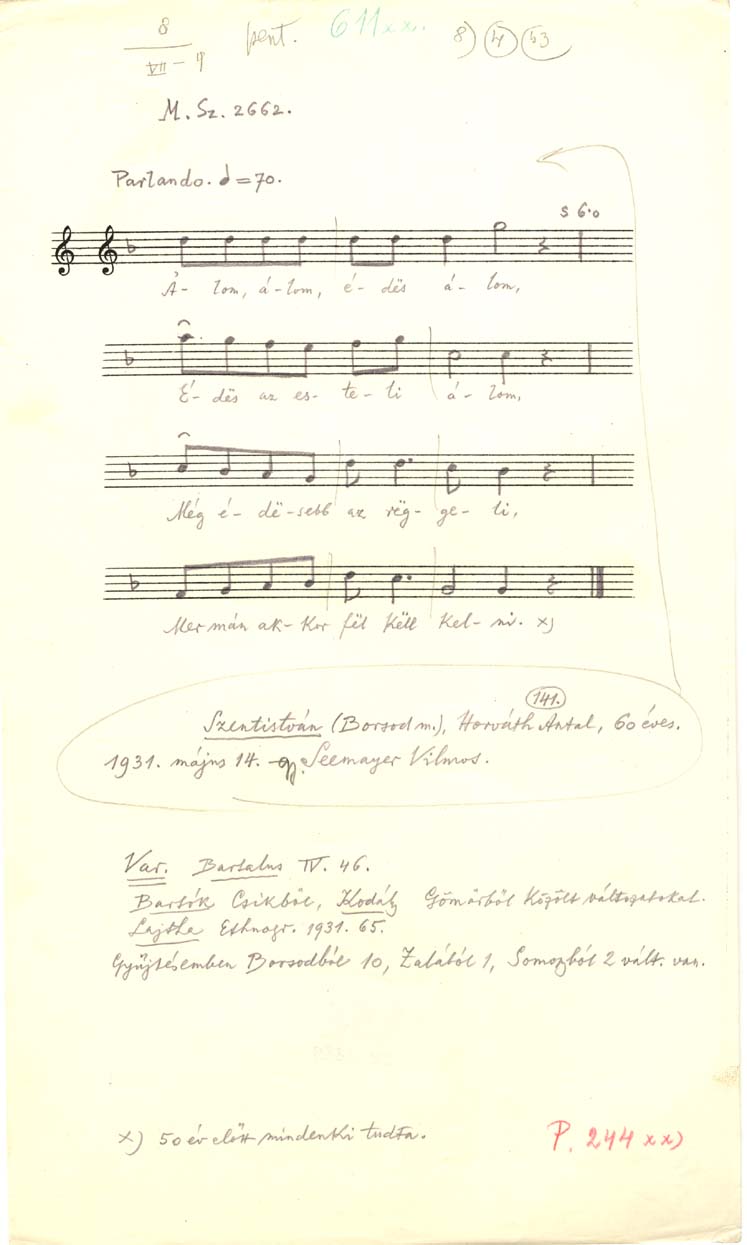 8 pent. 611xx. 8) 4 b3
VII - 9
M. Sz. 2662.
Parlando. = 70.
S 6·0
Á- lom, á-lom, é- dës á- lom,
É- dës az es- te- li á- lom,
Még é- dë-sebb az rëg- ge- li,
Mer mán ak- kor fël këll kel- ni. x)
141.
Szentistván (Borsod m.), Horváth Antal, 60 éves.
1931. május 14. gy. Seemayer Vilmos.
Var. Bartalus IV. 46.
Bartók Csikból, Kodály Gömörből közölt változatokat.
Lajtha Ethnogr. 1931. 65.
Gyűjtésemben Borsodból 10, Zalából 1, Somogyból 2 vált. van.
x) 50 év előtt mindenki tudta.
P. 244 xx)